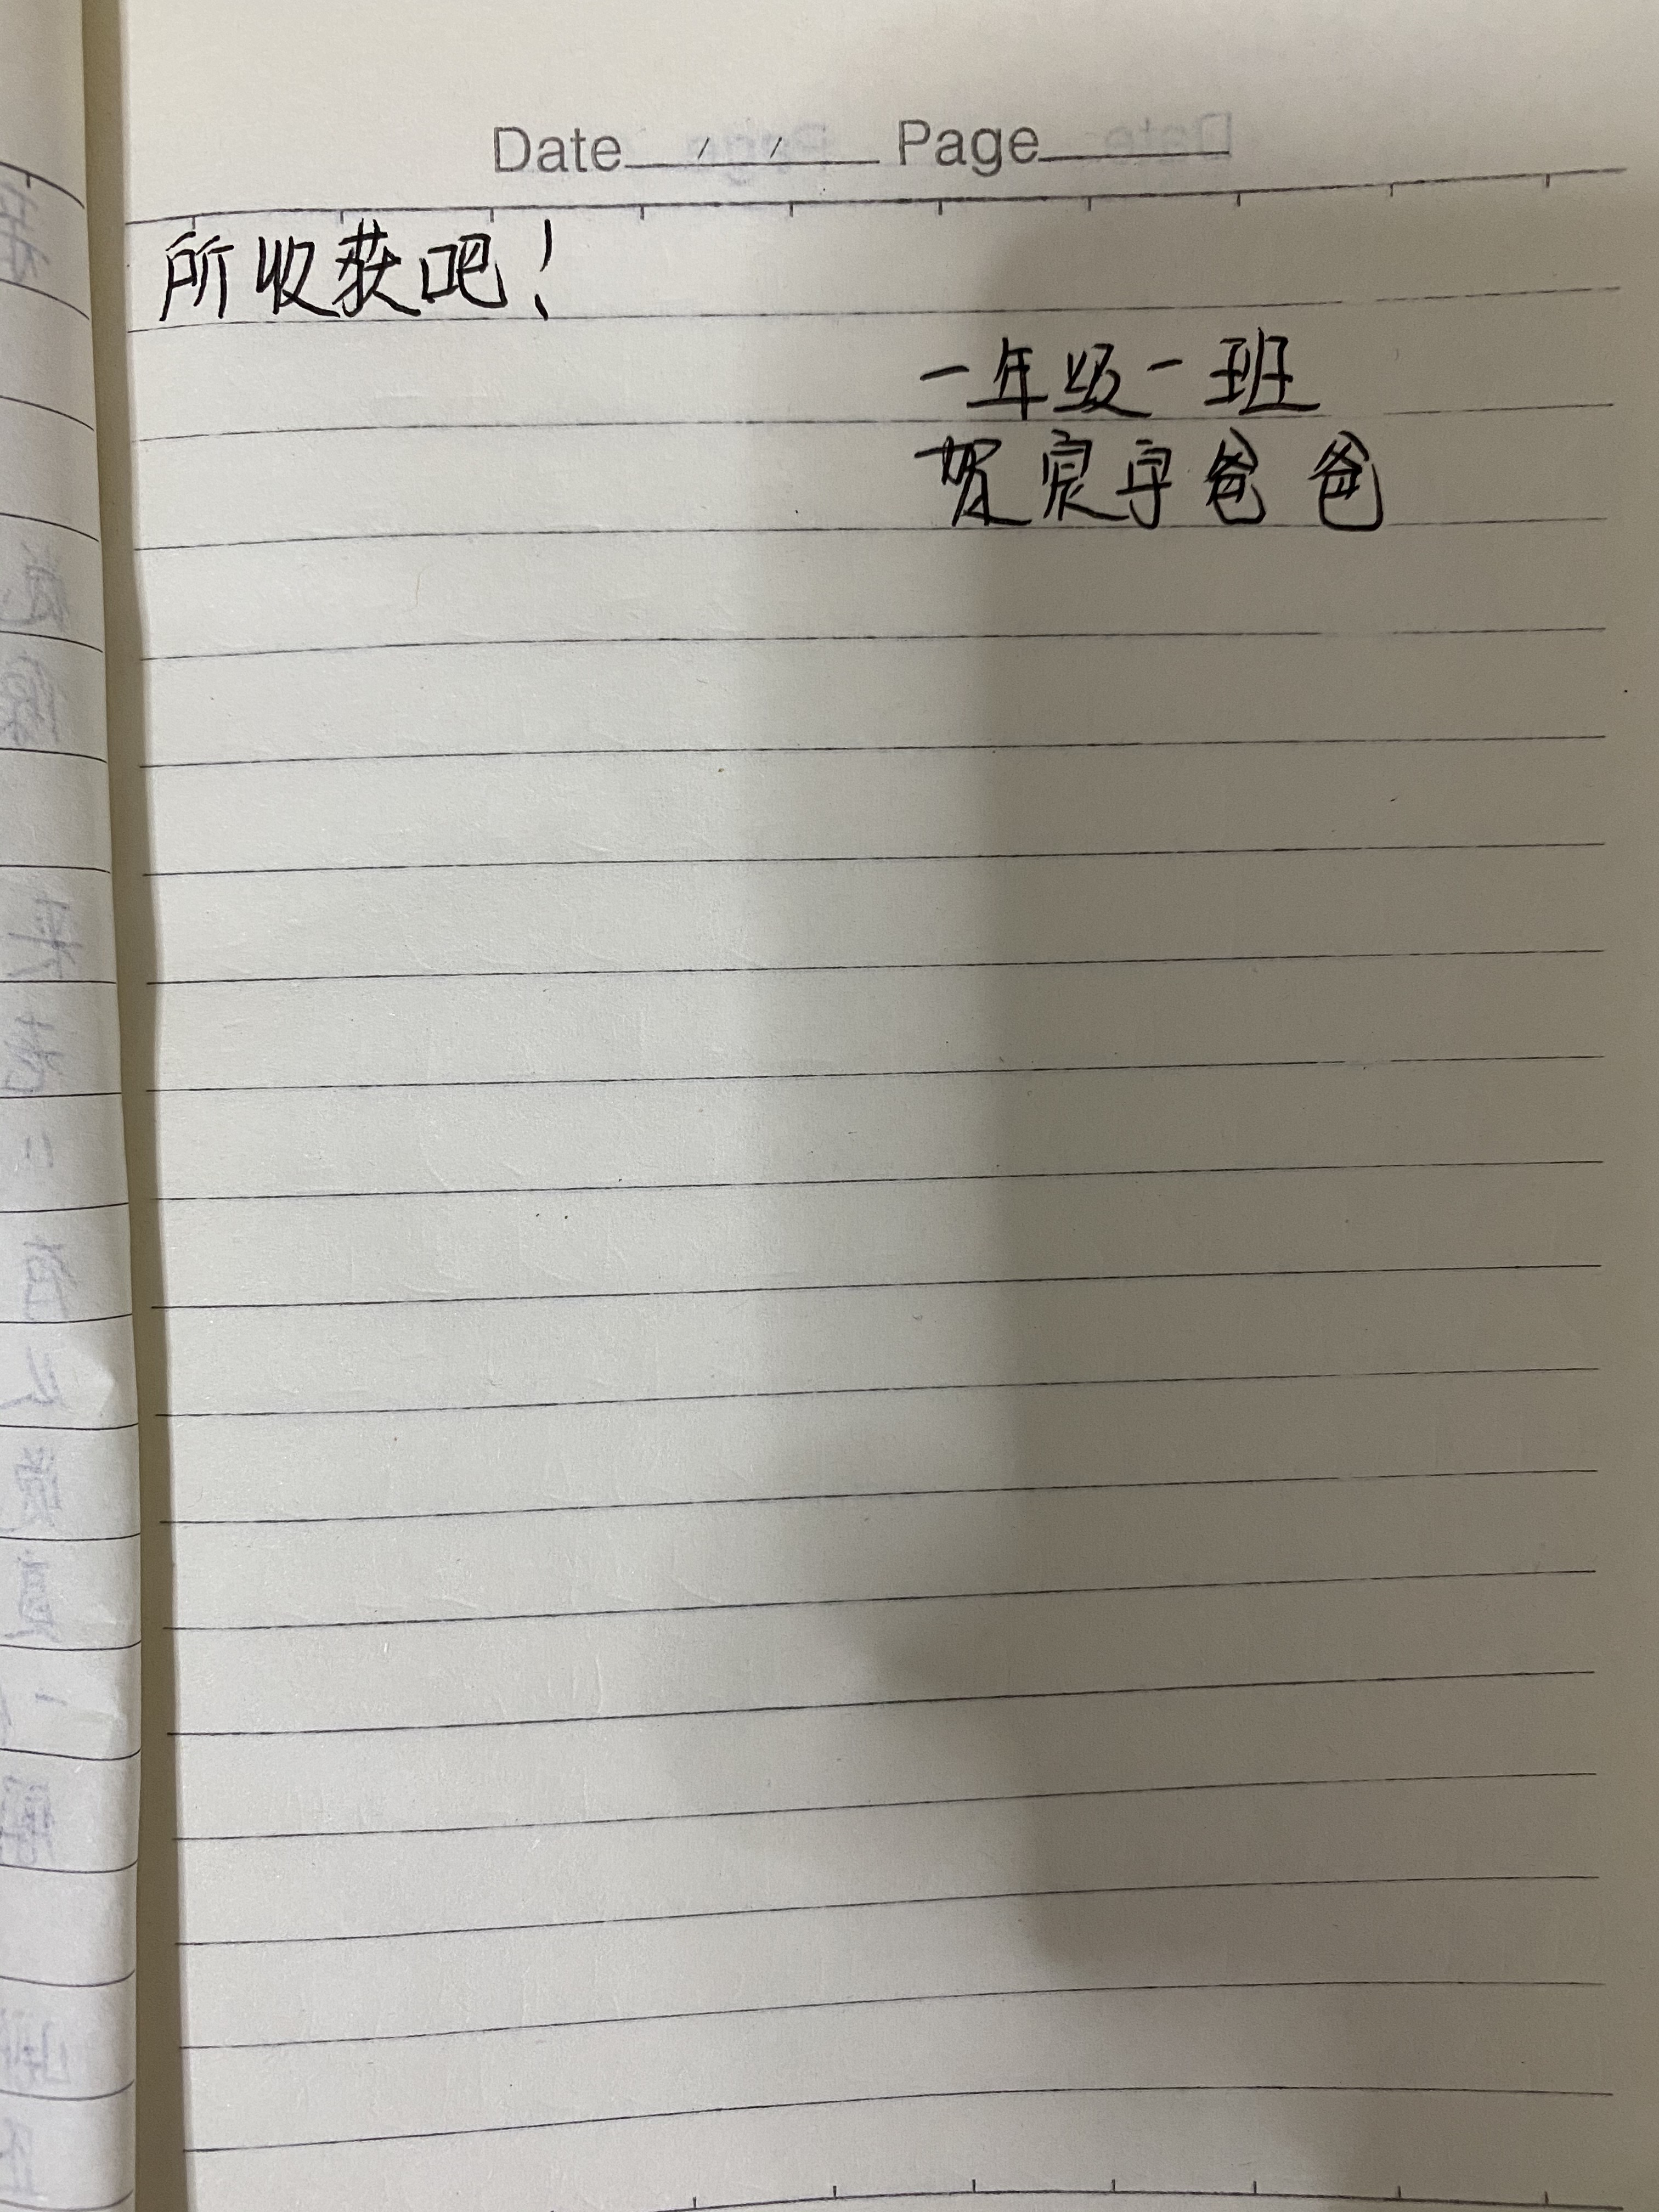 Date / / Page
所收获吧！
一年级一班
贺宸宇爸爸